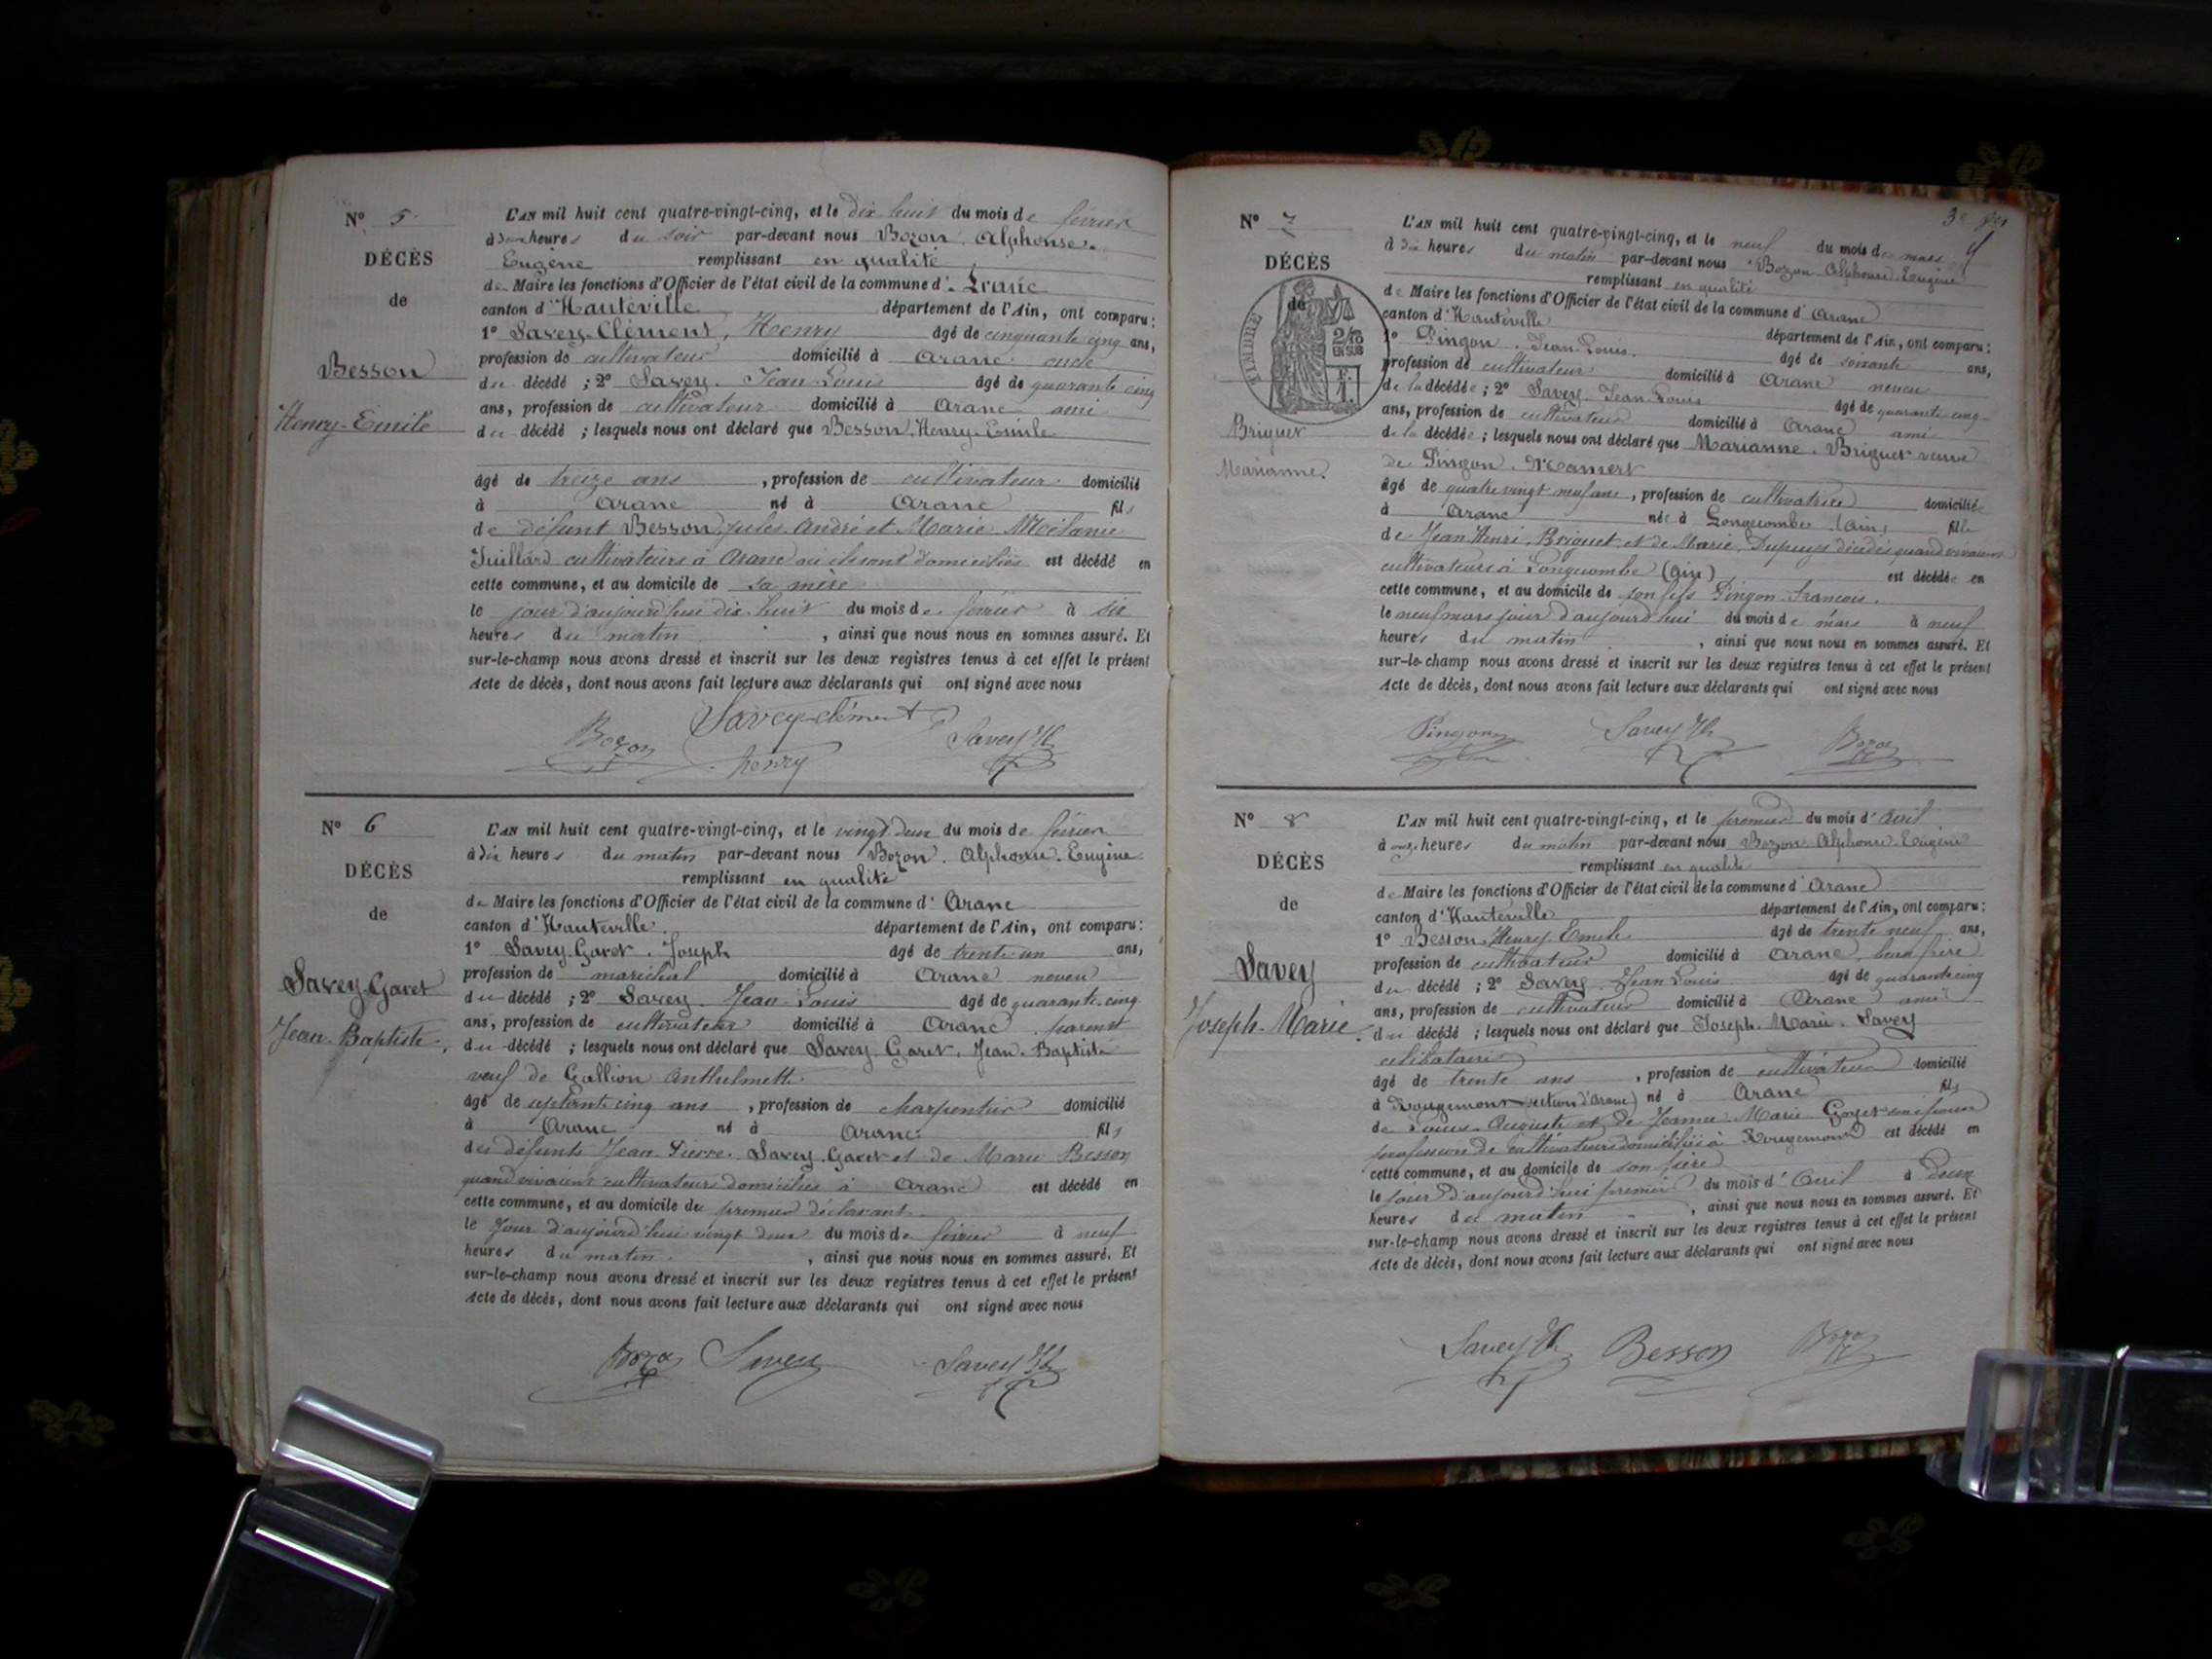 N° 5
DÉCÈS
de
Besson
Henry-Emile
L'AN mil huit cent quatre-vingt-cinq, et le dix huit du mois de février
à deux heures du soir par-devant nous Bozon Alphonse
Eugène remplissant en qualité
de Maire les fonctions d'Officier de l'état civil de la commune d' Aranc
canton d'Hauteville département de l'Ain, ont comparu :
1° Savey-Clément, Henry âgé de cinquante cinq ans,
profession de cultivateur domicilié à Aranc oncle
du décédé ; 2° Savey Jean Louis âgé de quarante cinq
ans, profession de cultivateur domicilié à Aranc ami
du décédé ; lesquels nous ont déclaré que Besson Henry-Emile
âgé de treize ans, profession de cultivateur domicilié
à Aranc né à Aranc fils
de défunt Besson Jules André et Marie Mélanie
Juillard cultivateurs à Aranc où ils sont domiciliés est décédé en
cette commune, et au domicile de sa mère
le jour d'aujourd'hui dix huit du mois de février à six
heures du matin, ainsi que nous nous en sommes assuré. Et
sur-le-champ nous avons dressé et inscrit sur les deux registres tenus à cet effet le présent
Acte de décès, dont nous avons fait lecture aux déclarants qui ont signé avec nous
Bozon Savey-clément henry Savey JL
N° 6
DÉCÈS
de
Savey-Garet
Jean-Baptiste
L'AN mil huit cent quatre-vingt-cinq, et le vingt deux du mois de février
à dix heures du matin par-devant nous Bozon Alphonse Eugène
remplissant en qualité
de Maire les fonctions d'Officier de l'état civil de la commune d' Aranc
canton d'Hauteville département de l'Ain, ont comparu :
1° Savey-Garet, Joseph âgé de trente un ans,
profession de maréchal domicilié à Aranc neveu
du décédé ; 2° Savey Jean Louis âgé de quarante cinq
ans, profession de cultivateur domicilié à Aranc parent
du décédé ; lesquels nous ont déclaré que Savey Garet, Jean Baptiste
veuf de Gallion Anthelmette
âgé de septante cinq ans, profession de charpentier domicilié
à Aranc né à Aranc fils
des défunts Jean Pierre Savey Garet et de Marie Besson
quand vivaient cultivateurs domiciliés à Aranc est décédé en
cette commune, et au domicile du premier déclarant
le jour d'aujourd'hui vingt deux du mois de février à neuf
heures du matin, ainsi que nous nous en sommes assuré. Et
sur-le-champ nous avons dressé et inscrit sur les deux registres tenus à cet effet le présent
Acte de décès, dont nous avons fait lecture aux déclarants qui ont signé avec nous
Bozon Savey Savey JL
N° 7
DÉCÈS
de
TIMBRE
2/10 EN SUS
Briquet
Marianne
L'AN mil huit cent quatre-vingt-cinq, et le neuf du mois de mars
à dix heures du matin par-devant nous Bozon Alphonse Eugène
remplissant en qualité
de Maire les fonctions d'Officier de l'état civil de la commune d' Aranc
canton d'Hauteville département de l'Ain, ont comparu :
1° Pingon Jean Louis âgé de soixante ans,
profession de cultivateur domicilié à Aranc neveu
de la décédée ; 2° Savey Jean Louis âgé de quarante cinq
ans, profession de cultivateur domicilié à Aranc ami
de la décédée ; lesquels nous ont déclaré que Marianne Briquet veuve
de Pingon Mamert
âgé de quatre vingt neuf ans, profession de cultivatrice domiciliée
à Aranc née à Longecombe (Ain) fille
de Jean Henri Briquet et de Marie Dupuys décédés quand vivaient
cultivateurs à Longecombe (Ain) est décédée en
cette commune, et au domicile de son fils Pingon François
le neuf mars jour d'aujourd'hui du mois de mars à neuf
heures du matin, ainsi que nous nous en sommes assuré. Et
sur-le-champ nous avons dressé et inscrit sur les deux registres tenus à cet effet le présent
Acte de décès, dont nous avons fait lecture aux déclarants qui ont signé avec nous
Pingon Savey JL Bozon
N° 8
DÉCÈS
de
Savey
Joseph-Marie
L'AN mil huit cent quatre-vingt-cinq, et le premier du mois d'Avril
à onze heures du matin par-devant nous Bozon Alphonse Eugène
remplissant en qualité
de Maire les fonctions d'Officier de l'état civil de la commune d' Aranc
canton d'Hauteville département de l'Ain, ont comparu :
1° Besson Henry Emile âgé de trente neuf ans,
profession de cultivateur domicilié à Aranc, beau frère
du décédé ; 2° Savey Jean Louis âgé de quarante cinq
ans, profession de cultivateur domicilié à Aranc ami
du décédé ; lesquels nous ont déclaré que Joseph Marie Savey
célibataire
âgé de trente ans, profession de cultivateur domicilié
à Rougemont (section d'Aranc) né à Aranc fils
de Louis Auguste et de Jeanne Marie Goyet
profession de cultivateurs domiciliés à Rougemont est décédé en
cette commune, et au domicile de son père
le jour d'aujourd'hui premier du mois d'Avril à deux
heures du matin, ainsi que nous nous en sommes assuré. Et
sur-le-champ nous avons dressé et inscrit sur les deux registres tenus à cet effet le présent
Acte de décès, dont nous avons fait lecture aux déclarants qui ont signé avec nous
Savey JL Besson Bozon